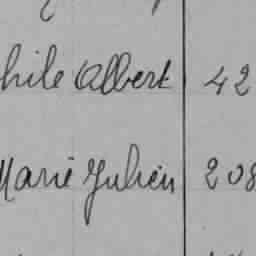 hile Albert 42
Marie Julien 208